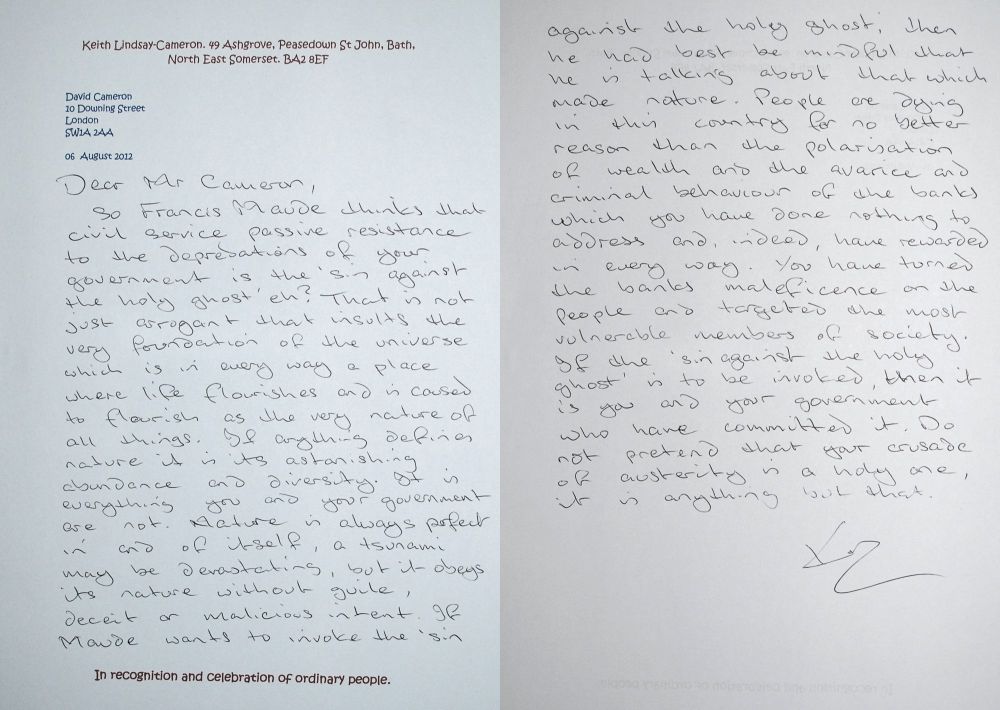 Keith Lindsay-Cameron. 49 Ashgrove, Peasedown St John, Bath,
North East Somerset. BA2 8EF
David Cameron
10 Downing Street
London
SW1A 2AA
06 August 2012
Dear Mr Cameron,
So Francis Maude thinks that
civil service passive resistance
to the depredations of your
government is the 'sin against
the holy ghost' eh? That is not
just arrogant that insults the
very foundation of the universe
which is in every way a place
where life flourishes and is caused
to flourish as the very nature of
all things. If anything defines
nature it is its astonishing
abundance and diversity. It is
everything you and your government
are not. Nature is always perfect
in and of itself, a tsunami
may be devastating, but it obeys
its nature without guile,
deceit or malicious intent. If
Maude wants to invoke the 'sin
In recognition and celebration of ordinary people.
against the holy ghost', then
he had best be mindful that
he is talking about that which
made nature. People are dying
in this country for no better
reason than the polarisation
of wealth and the avarice and
criminal behaviour of the banks
which you have done nothing to
address and, indeed, have rewarded
in every way. You have turned
the banks maleficence on the
people and targeted the most
vulnerable members of society.
If the 'sin against the holy
ghost' is to be invoked, then it
is you and your government
who have committed it. Do
not pretend that your crusade
of austerity is a holy one,
it is anything but that.